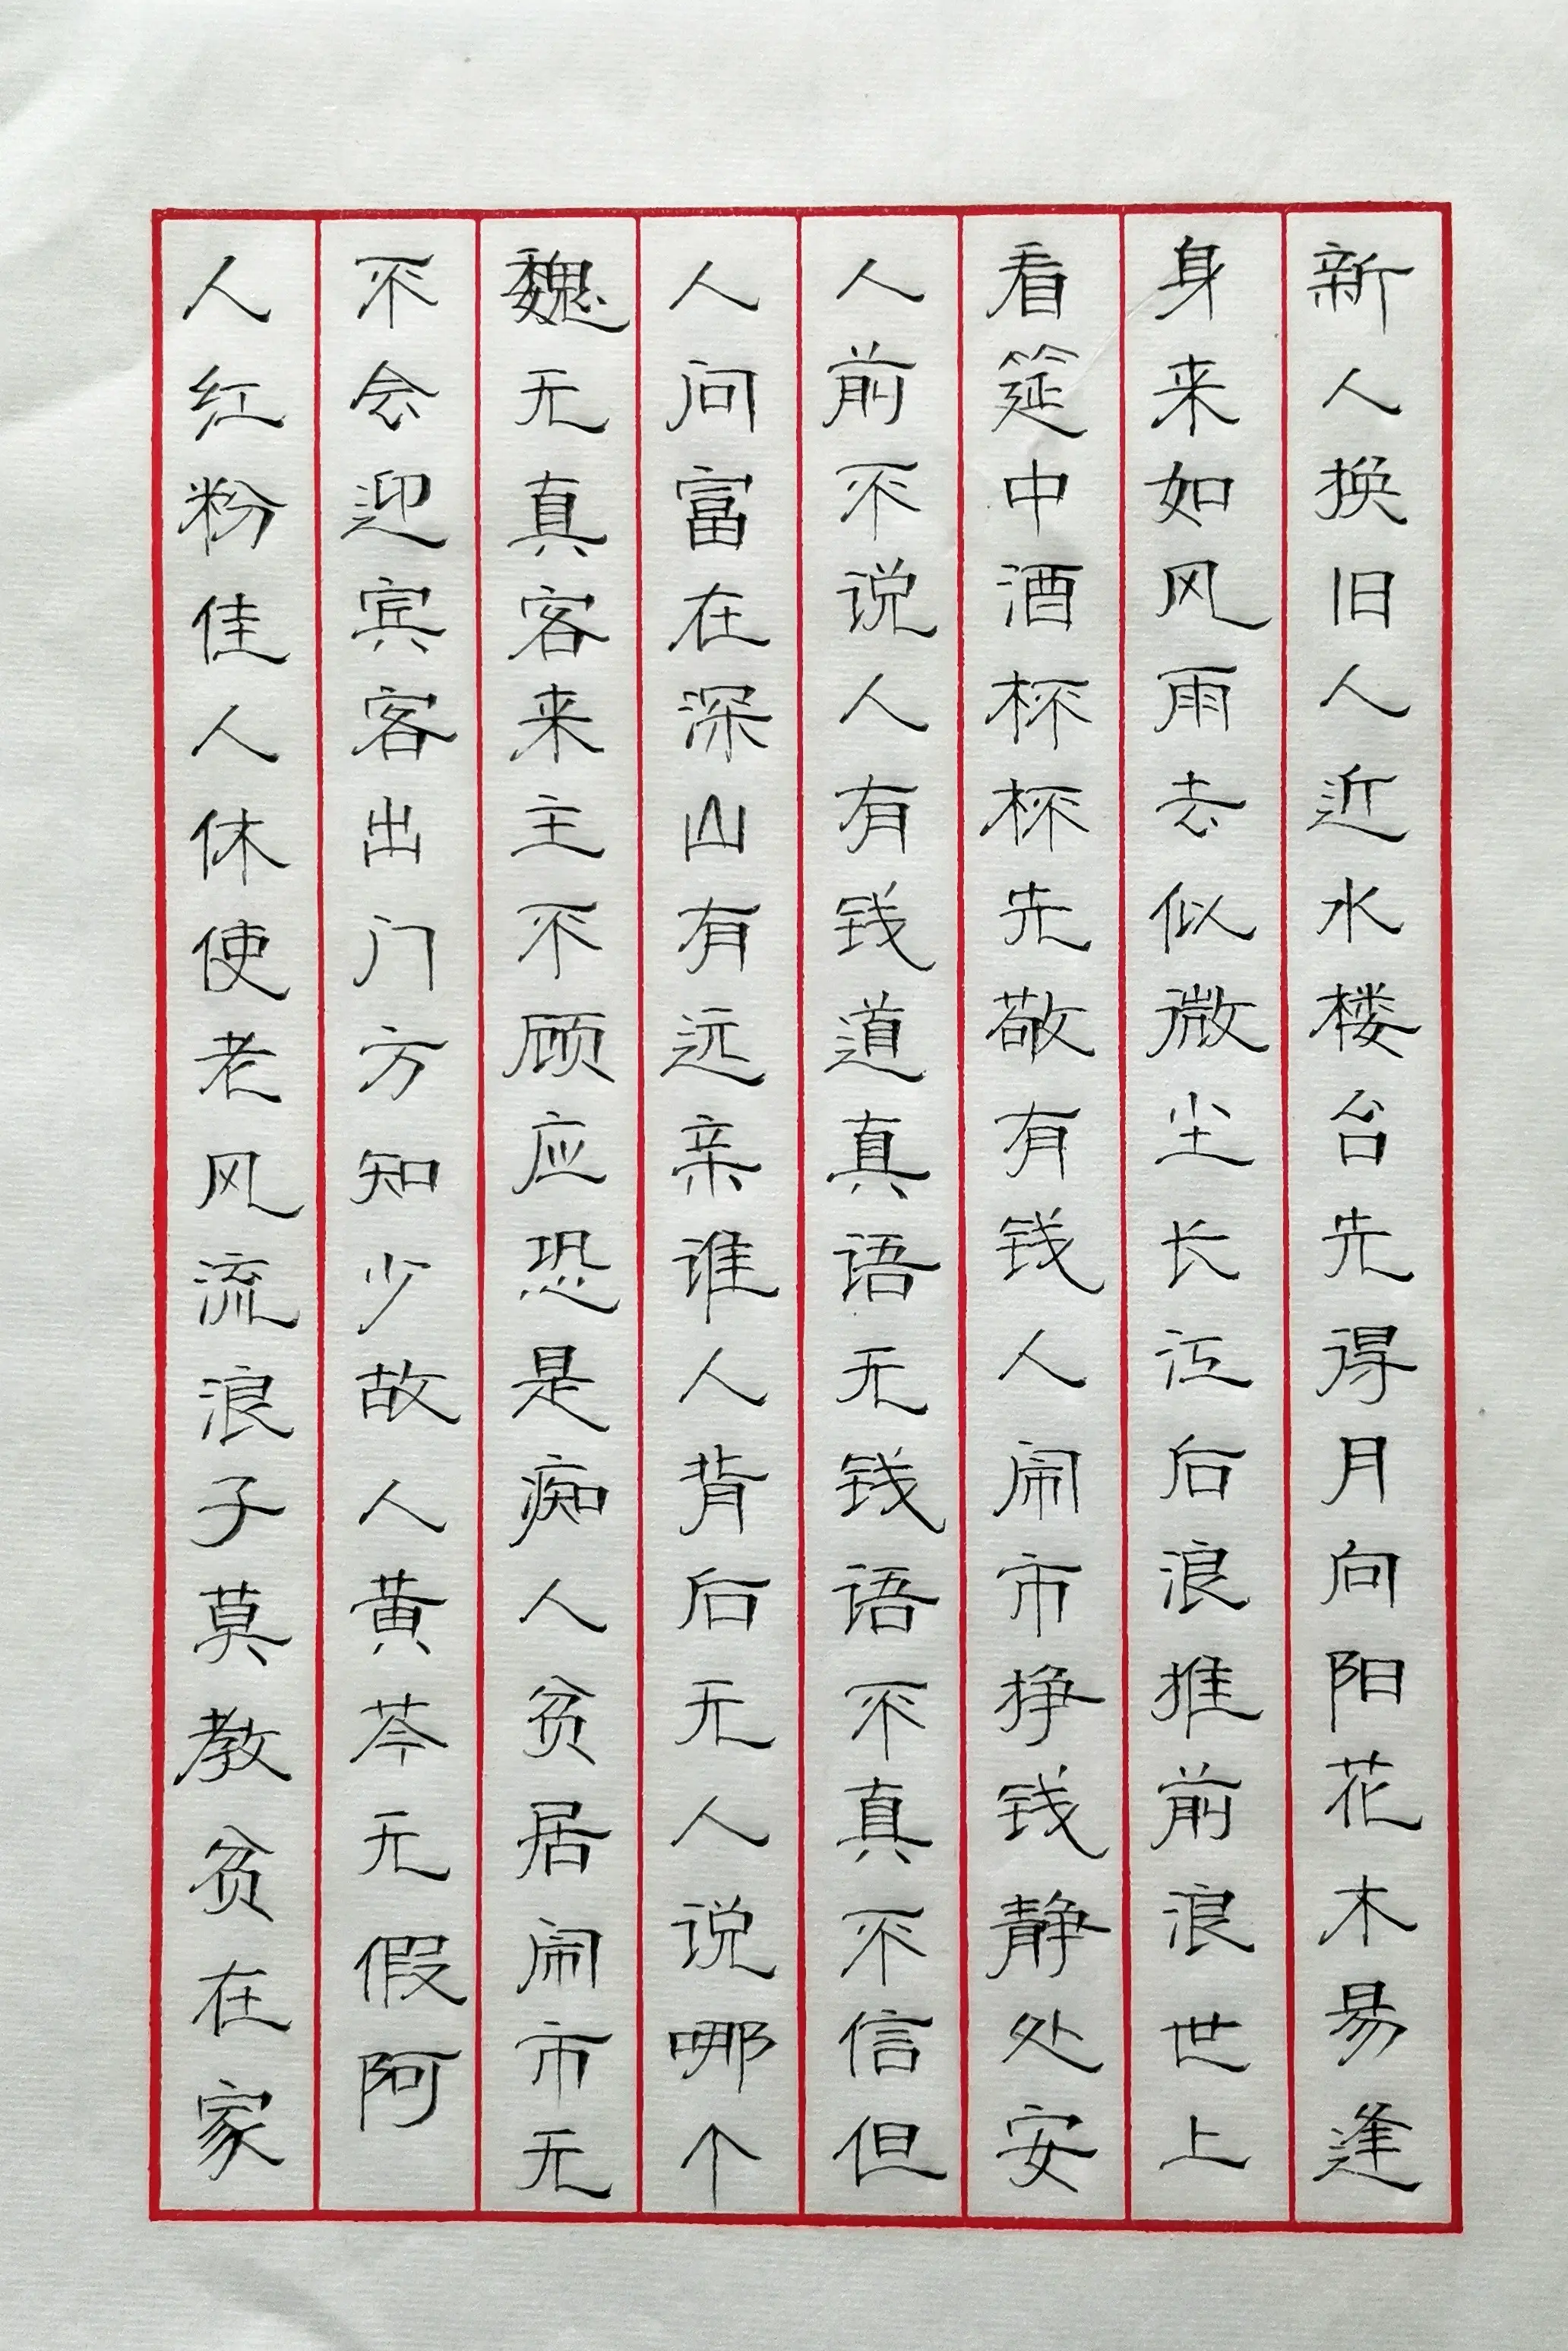 人红粉佳人休使老风流浪子莫教贫在家
不会迎宾客出门方知少故人黄芩无假阿
魏无真客来主不顾应恐是痴人贫居闹市无
人问富在深山有远亲谁人背后无人说哪个
人前不说人有钱道真语无钱语不真不信但
看筵中酒杯杯先敬有钱人闹市挣钱静处安
身来如风雨去似微尘长江后浪推前浪世上
新人换旧人近水楼台先得月向阳花木易逢